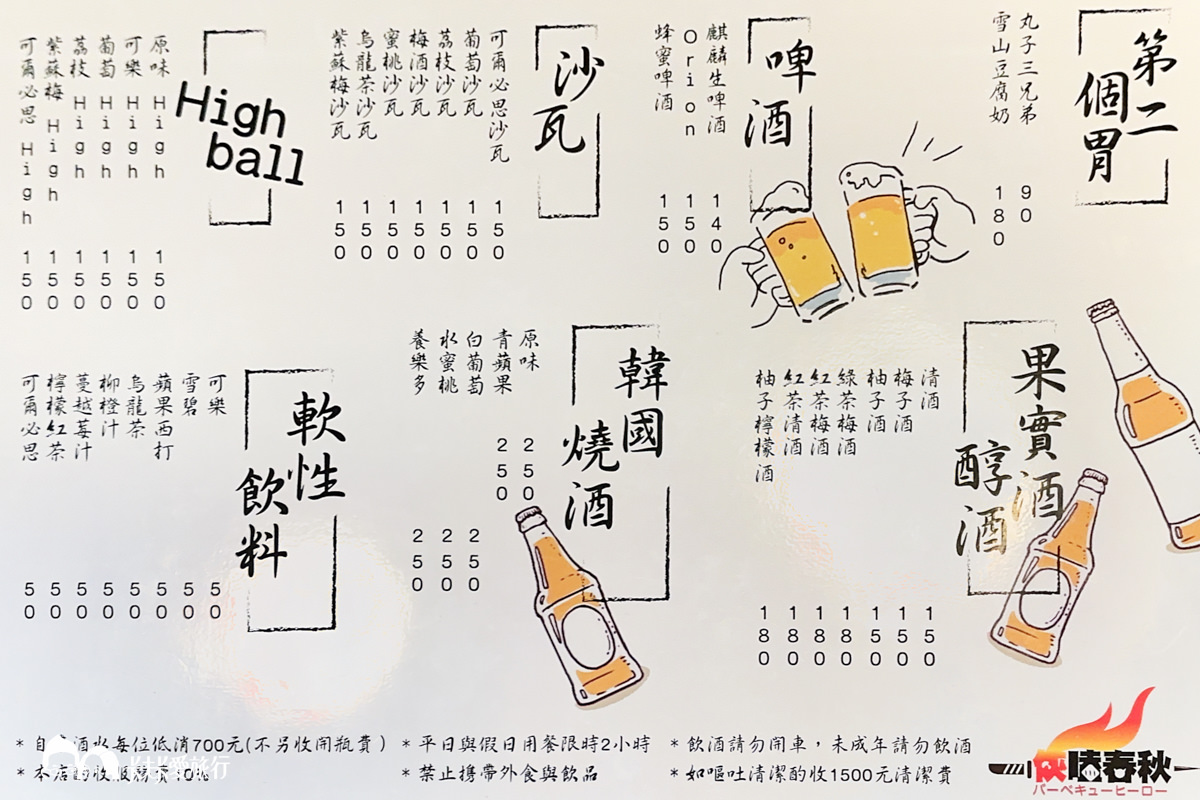 第二個胃
丸子三兄弟 90
雪山豆腐奶 180
啤酒
麒麟生啤酒 140
Orion 150
蜂蜜啤酒 150
沙瓦
可爾必思沙瓦 150
葡萄沙瓦 150
荔枝沙瓦 150
梅酒沙瓦 150
蜜桃沙瓦 150
烏龍茶沙瓦 150
紫蘇梅沙瓦 150
High
ball
原味 High 150
可樂 High 150
葡萄 High 150
荔枝 High 150
紫蘇梅 High 150
可爾必思 High 150
果實酒
醇酒
清酒 150
梅子酒 150
柚子酒 150
綠茶梅酒 180
紅茶梅酒 180
紅茶清酒 180
柚子檸檬酒 180
韓國
燒酒
原味 250
青蘋果 250
白葡萄 250
水蜜桃 250
養樂多 250
軟性
飲料
可樂 50
雪碧 50
蘋果西打 50
烏龍茶 50
柳橙汁 50
蔓越莓汁 50
檸檬紅茶 50
可爾必思 50
* 自 酒水每位低消700元(不另收開瓶費)
* 平日與假日用餐限時2小時
* 飲酒請勿開車，未成年請勿飲酒
* 本店 收服務費10%
* 禁止攜帶外食與飲品
* 如嘔吐清潔酌收1500元清潔費
愛旅行
燒春秋
バーベキューヒーロー